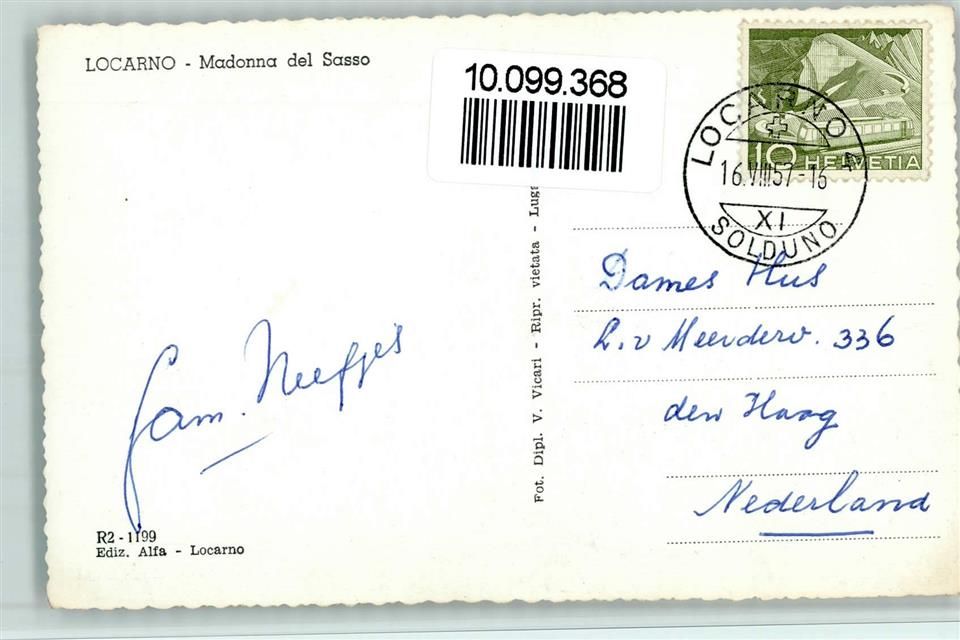 LOCARNO - Madonna del Sasso
10.099.368
10 HELVETIA
LOCARNO 4
16.VIII57-16
XI
SOLDUNO
Fot. Dipl. V. Vicari - Ripr. vietata - Luga
Dames Hus
L.v Meerderv. 336
den Haag
Nederland
fam. Neefjes
R2 - 1199
Ediz. Alfa - Locarno